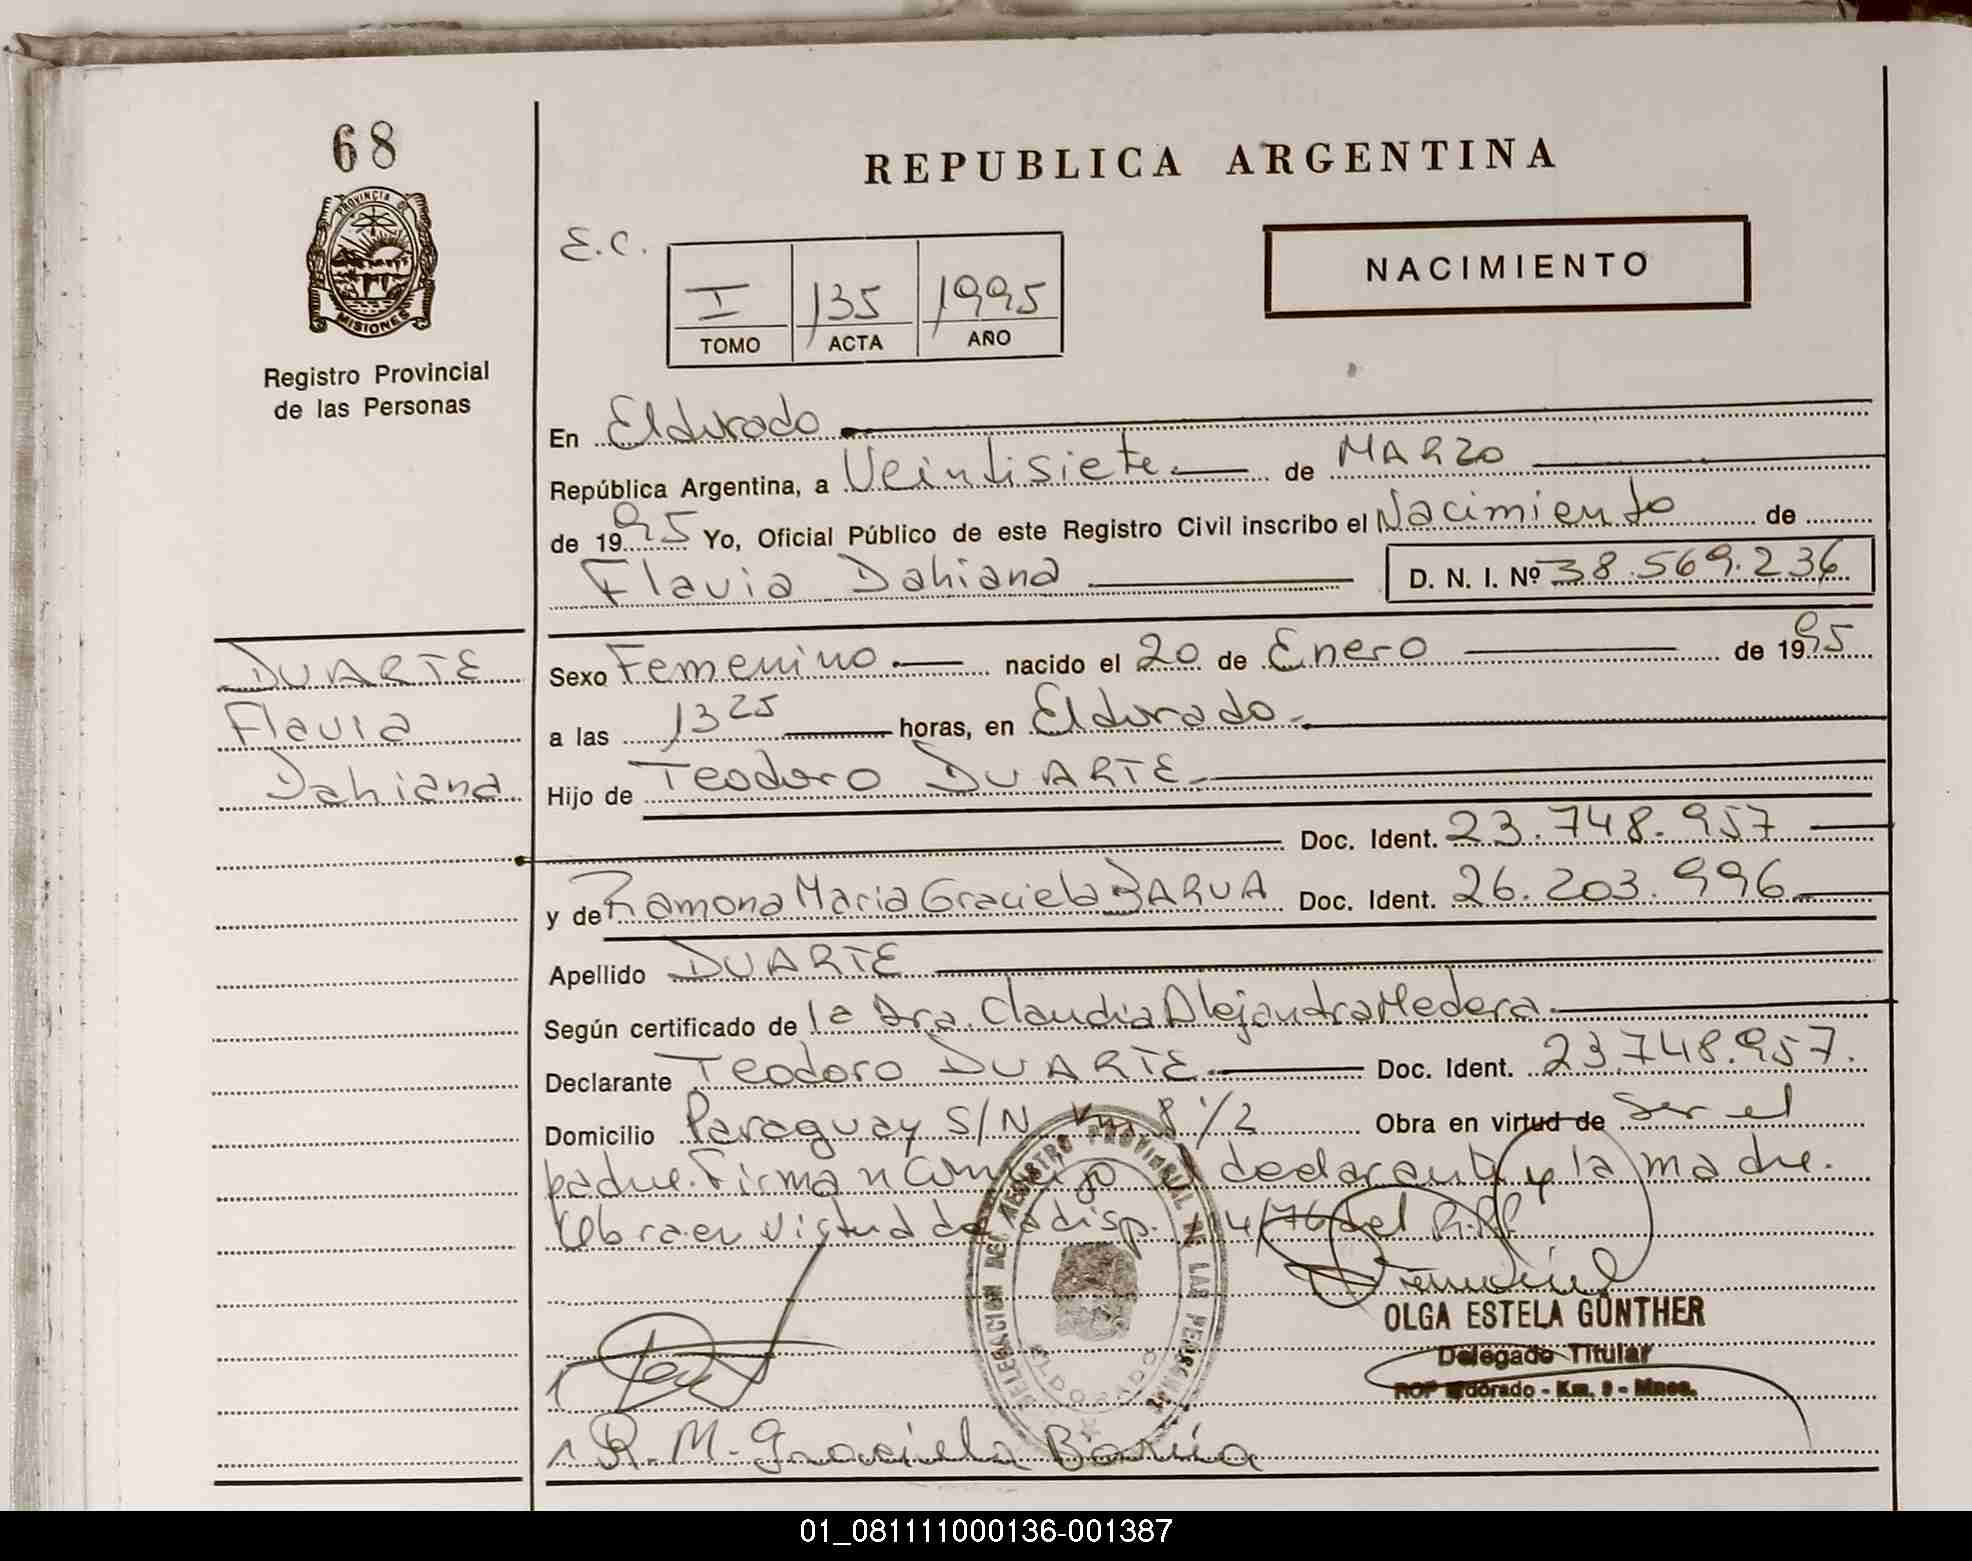 68
PROVINCIA DE
MISIONES
Registro Provincial
de las Personas
REPUBLICA ARGENTINA
E.C.
I 135 1995
TOMO ACTA AÑO
NACIMIENTO
En Eldorado
República Argentina, a Veintisiete de MARZO
de 1995 Yo, Oficial Público de este Registro Civil inscribo el Nacimiento de
Flavia Dahiana D. N. I. Nº 38.569.236
DUARTE
Flavia
Dahiana
Sexo Femenino nacido el 20 de Enero de 1995
a las 13 25 horas, en Eldorado
Hijo de Teodoro DUARTE
Doc. Ident. 23.748.957
y de Ramona Maria Graciela BARUA Doc. Ident. 26.203.996
Apellido DUARTE
Según certificado de la Dra. Claudia Alejandra Medera
Declarante Teodoro DUARTE Doc. Ident. 23.748.957.
Domicilio Paraguay S/N Km 8 1/2 Obra en virtud de Ser el
padre. Firman conmigo el declarante y la madre.
Obra en virtud de la disp. 4/76 del R.P.P.
DELEGACION DEL REGISTRO PROVINCIAL DE LAS PERSONAS
ELDORADO
OLGA ESTELA GÜNTHER
Delegado Titular
RCP Eldorado - Km. 9 - Mnes.
R. M. Graciela Barúa
01_081111000136-001387